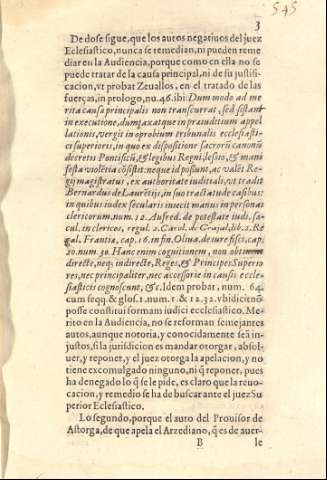 545
3
De dose sigue, que los autos negatiuos del juez
Eclesiastico, nunca se remedian, ni pueden reme
diar en la Audiencia, porque como en ella no se
puede tratar de la causa principal, ni de su justifi
cacion, vt probat Zeuallos, en el tratado de las
fuerças, in prologo, nu. 46. ibi: Dum modo ad me
rita causa principalis non transcurrat, sed sistant
in executione, dumtaxat que in præiuditium appel
lationis, vergit in oprobium tribunalis ecclesiasti-
ci superioris, in quo ex dispositione sacrorũ canonũ
decretis Pontificũ, & legibus Regni, lesio, & mani
festa violẽtia cõsistit: neque id possunt, ac valẽt Re-
gij magistratus, ex authoritate iuditiali, vt tradit
Bernardus de Lauretijs, in suo tractatu de casibus
in quibus iudex secularis inecit manus in personas
clericorum, num. 12. Aufred. de potestate iudi. sæ-
cul. in clericos, regul. 2. Carol. de Grajal, lib. 2. Re
gal. Frantia, cap. 16. in fin. Oliua, de iure fisci, cap.
10. num. 30. Hanc enim cognitionem, non obtinent
directe, neq; indirecte, Reges, & Principes Superio
res, nec principaliter, nec accessorie in causis eccle-
siasticis cognoscunt, & c. Idem probat, num. 64.
cum seqq. & glos. 1. num. 1. & 12. 32. vbi dicit nõ
posse constitui formam iudici ecclesiastico. Me-
rito en la Audiencia, no se reforman semejantes
autos, aunque notoria, y conocidamente seã in-
justos, si la jurisdicion es mandar otorgar, absol-
uer, y reponer, y el juez otorga la apelacion, y no
tiene excomulgado ninguno, ni q̃ reponer, pues
ha denegado lo q̃ se le pide, es claro que la reuo-
cacion, y remedio se ha de buscar ante el juez Su
perior Eclesiastico.
Lo segundo, porque el auto del Prouisor de
Astorga, de que apela el Arzediano, q̃ es de auer-
B le